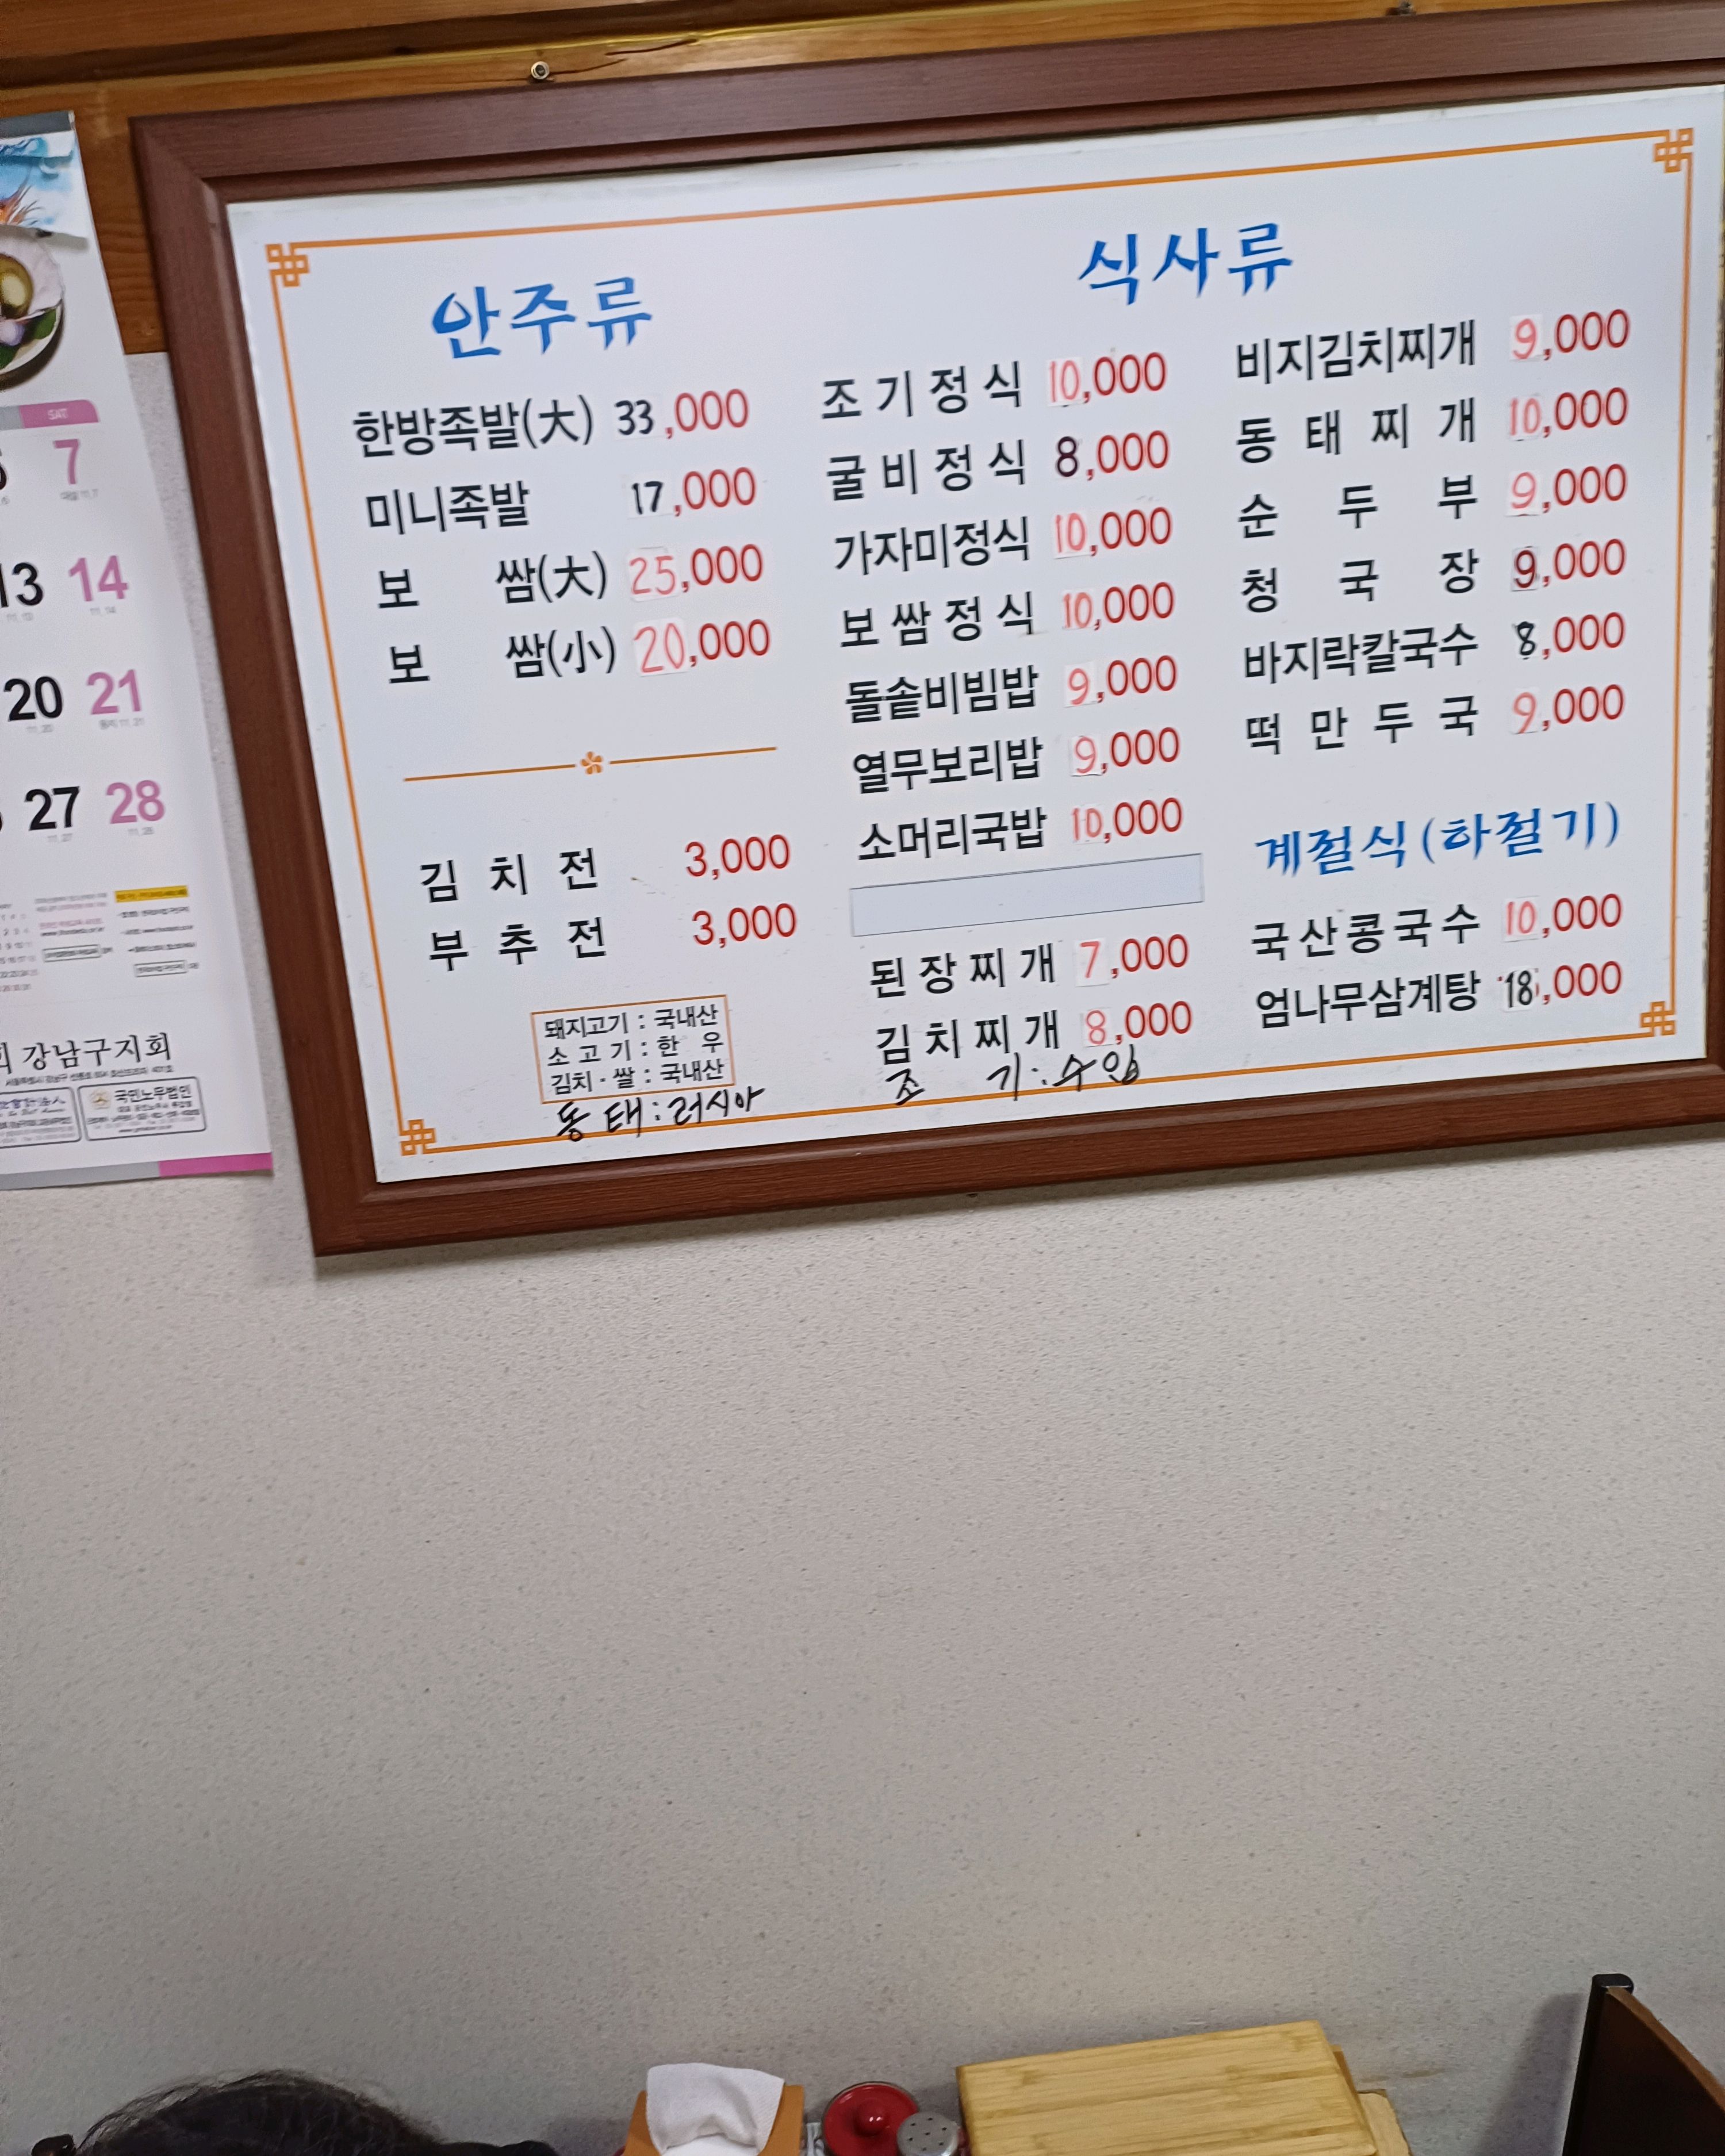 안주류
한방족발(大) 33,000
미니족발 17,000
보 쌈(大) 25,000
보 쌈(小) 20,000
김 치 전 3,000
부 추 전 3,000
돼지고기 : 국내산
소 고 기 : 한 우
김치 · 쌀 : 국내산
동 태 : 러시아
식사류
조 기 정 식 10,000
굴 비 정 식 8,000
가자미정식 10,000
보 쌈 정 식 10,000
돌솥비빔밥 9,000
열무보리밥 9,000
소머리국밥 10,000
된 장 찌 개 7,000
김 치 찌 개 8,000
조 기 : 수입
비지김치찌개 9,000
동 태 찌 개 10,000
순 두 부 9,000
청 국 장 9,000
바지락칼국수 8,000
떡 만 두 국 9,000
계절식(하절기)
국산콩국수 10,000
엄나무삼계탕 18,000
SAT
7
13 14
20 21
27 28
강남구지회
국민노무법인